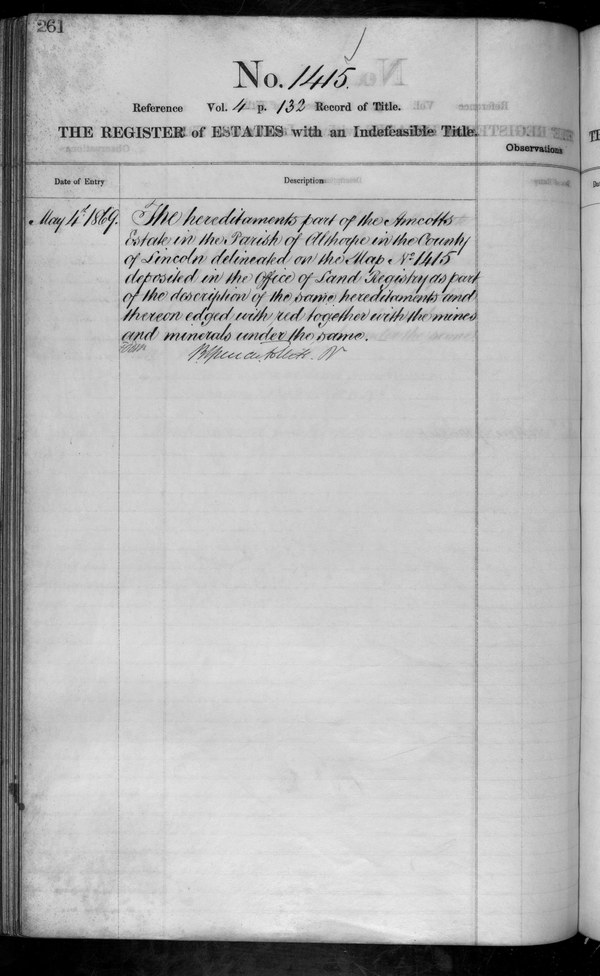 261
No. 1415.
Reference Vol. 4 p. 132 Record of Title.
THE REGISTER of ESTATES with an Indefeasible Title.
Observations
Date of Entry
Description
May 4th 1869.
The hereditaments part of the Amcotts
Estate in the Parish of Althorpe in the County
of Lincoln delineated on the Map No. 1415
deposited in the Office of Land Registry as part
of the description of the same hereditaments and
thereon edged with red together with the mines
and minerals under the same.